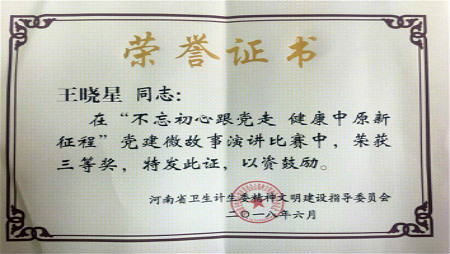 荣誉证书
王晓星 同志：
在“不忘初心跟党走 健康中原新
征程”党建微故事演讲比赛中，荣获
三等奖，特发此证，以资鼓励。
河南省卫生计生委精神文明建设指导委员会
二〇一八年六月